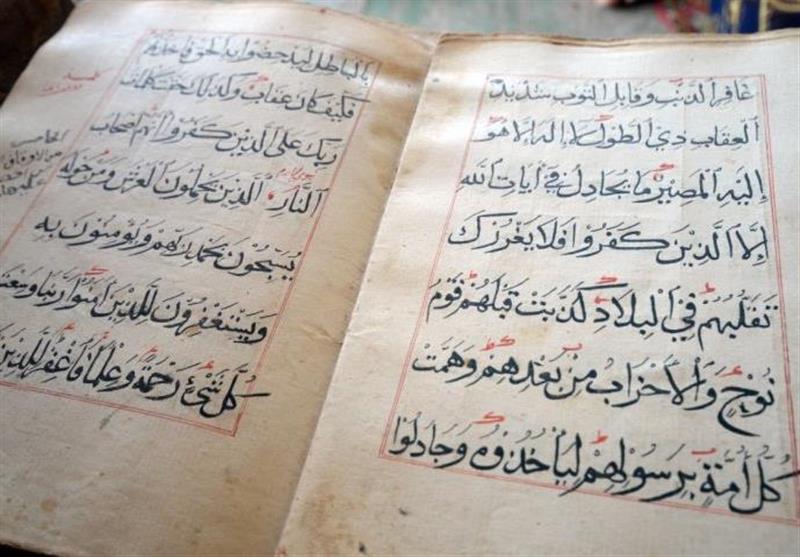 غَافِرِ الذَّنْبِ وَقَابِلِ التَّوْبِ شَدِيدِ
الْعِقَابِ ذِي الطَّوْلِ لَا إِلَهَ إِلَّا هُوَ
إِلَيْهِ الْمَصِيرُ مَا يُجَادِلُ فِي آيَاتِ اللَّهِ
إِلَّا الَّذِينَ كَفَرُوا فَلَا يَغْرُرْكَ
تَقَلُّبُهُمْ فِي الْبِلَادِ كَذَّبَتْ قَبْلَهُمْ قَوْمُ
نُوحٍ وَالْأَحْزَابُ مِنْ بَعْدِهِمْ وَهَمَّتْ
كُلُّ أُمَّةٍ بِرَسُولِهِمْ لِيَأْخُذُوهُ وَجَادَلُوا
بِالْبَاطِلِ لِيُدْحِضُوا بِهِ الْحَقَّ فَأَخَذْتُهُمْ
فَكَيْفَ كَانَ عِقَابِ وَكَذَلِكَ حَقَّتْ كَلِمَتُ
رَبِّكَ عَلَى الَّذِينَ كَفَرُوا أَنَّهُمْ أَصْحَابُ
النَّارِ الَّذِينَ يَحْمِلُونَ الْعَرْشَ وَمَنْ حَوْلَهُ
يُسَبِّحُونَ بِحَمْدِ رَبِّهِمْ وَيُؤْمِنُونَ بِهِ
وَيَسْتَغْفِرُونَ لِلَّذِينَ آمَنُوا رَبَّنَا وَسِعْتَ
كُلَّ شَيْءٍ رَحْمَةً وَعِلْمًا فَاغْفِرْ لِلَّذِينَ